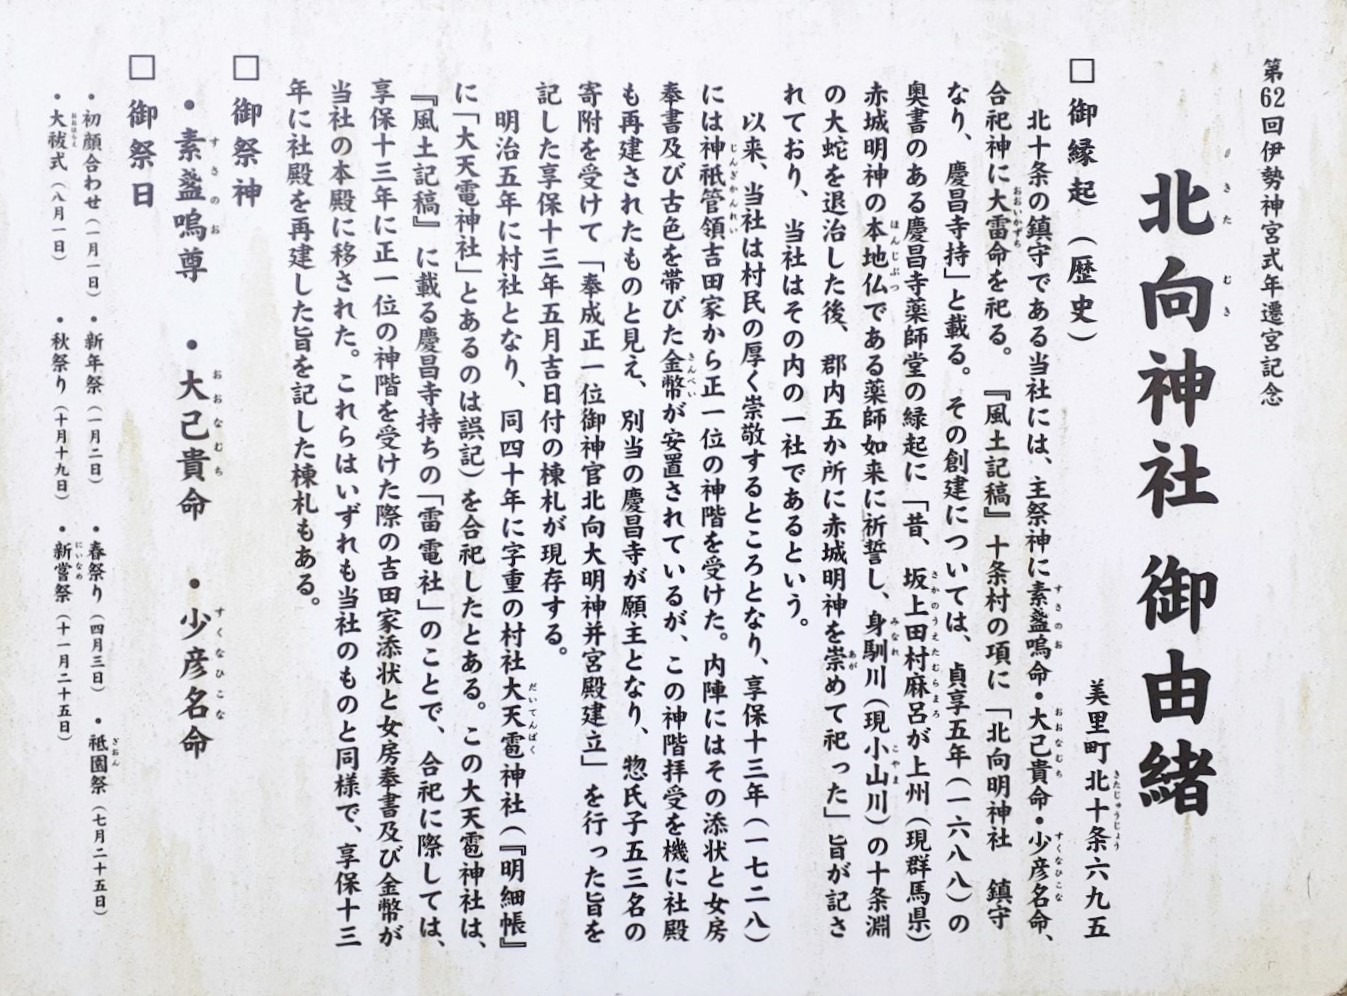 第62回伊勢神宮式年遷宮記念
北向神社 御由緒
きた むき
美里町北十条六九五
きたじゅうじょう
□御縁起（歴史）
北十条の鎮守である当社には、主祭神に素盞嗚命・大己貴命・少彦名命、
すさのお おおなむち すくなひこな
合祀神に大雷命を祀る。『風土記稿』十条村の項に「北向明神社 鎮守
おおいかずち
なり、慶昌寺持」と載る。その創建については、貞享五年（一六八八）の
奥書のある慶昌寺薬師堂の縁起に「昔、坂上田村麻呂が上州（現群馬県）
さかのうえたむらまろ
赤城明神の本地仏である薬師如来に祈誓し、身馴川（現小山川）の十条淵
ほんじぶつ みなれ こやま
の大蛇を退治した後、郡内五か所に赤城明神を崇めて祀った」旨が記さ
あが
れており、当社はその内の一社であるという。
以来、当社は村民の厚く崇敬するところとなり、享保十三年（一七二八）
には神祇管領吉田家から正一位の神階を受けた。内陣にはその添状と女房
じんぎかんれい
奉書及び古色を帯びた金幣が安置されているが、この神階拝受を機に社殿
きんぺい
も再建されたものと見え、別当の慶昌寺が願主となり、惣氏子五三名の
寄附を受けて「奉成正一位御神官北向大明神并宮殿建立」を行った旨を
記した享保十三年五月吉日付の棟札が現存する。
明治五年に村社となり、同四十年に字重の村社大天雹神社（『明細帳』
だいてんばく
に「大天電神社」とあるのは誤記）を合祀したとある。この大天雹神社は、
『風土記稿』に載る慶昌寺持ちの「雷電社」のことで、合祀に際しては、
享保十三年に正一位の神階を受けた際の吉田家添状と女房奉書及び金幣が
当社の本殿に移された。これらはいずれも当社のものと同様で、享保十三
年に社殿を再建した旨を記した棟札もある。
□御祭神
・素盞嗚尊 ・大己貴命 ・少彦名命
すさのお おおなむち すくなひこな
□御祭日
・初顔合わせ（一月一日） ・新年祭（一月二日） ・春祭り（四月三日） ・祗園祭（七月二十五日）
ぎおん
・大祓式（八月一日） ・秋祭り（十月十九日） ・新嘗祭（十一月二十五日）
おおはらく にいなめ